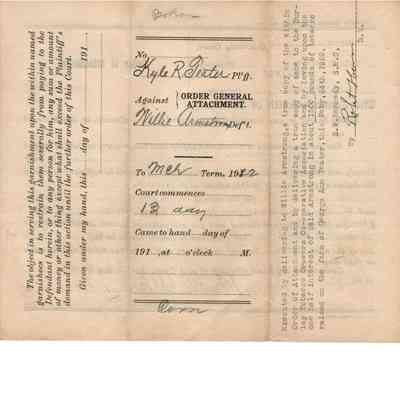 The object in serving this garnishment upon the within named
garnishees is to restrain them severally from paying to the
Defendant herein, or to any person for him, any sum or amount
of money or other thing except what shall exceed the Plaintiff's
demand in this action until the further order of this Court.
Given under my hand, this day of 191
No.
Kyle R. Teeter Pl'ff.
Against
ORDER GENERAL
ATTACHMENT.
Willie Armstrong Def't.
To Mch Term, 1922
Court commences
13 day
Came to hand day of
191 , at o'clock M.
Executed by delivering to Willie Armstrong, a true copy of the within
Order of Attachment and by delivering a true copy of same to the Bur-
ley Tobacco Growers Co-operative Association and by levying upon the
one half interest of said Armstrong in about pounds of tobacco
raised on the farm of George Ann Teater, this Feby.
By
D.S.